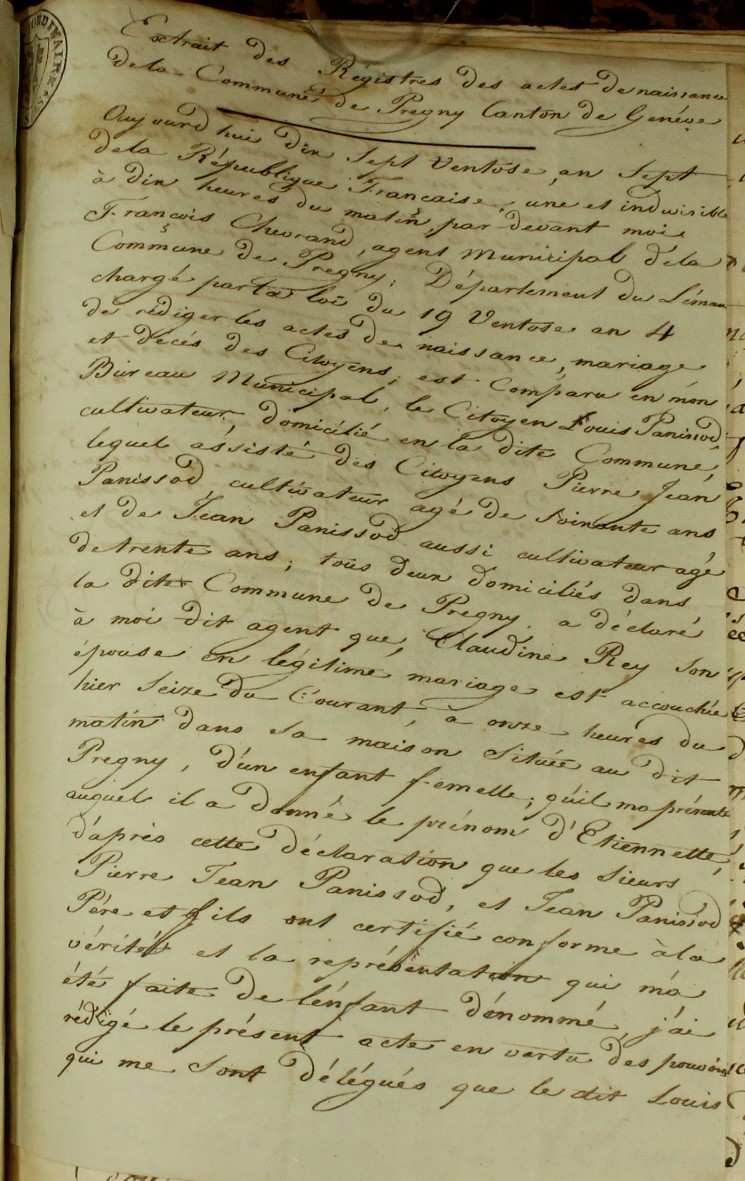 Extrait des Régistres des actes de naissance
de la Commune de Pregny Canton de Genéve
Aujourd hui dix Sept Ventôse an Sept
de la République Française, une et indivisible
à dix heures du matin, par devant moi
François Chevrand, agent Municipal de la
Commune de Pregny, Département du Léman
chargé par la loi du 19 Ventose an 4
de rédiger les actes de naissance, mariage
et décés des Citoyens, est Comparu en mon
Bureau Municipal, le Citoyen Louis Panissod,
cultivateur, domicilié en la dite Commune,
lequel assisté des Citoyens Pierre Jean
Panissod cultivateur agé de soixante ans
et de Jean Panissod aussi cultivateur agé
de trente ans, tous deux domiciliés dans
la dite Commune de Pregny. a déclaré
à moi dit agent que, Claudine Rey son
épouse en légitime mariage est accouchée
hier seize du Courant, à onze heures du
matin dans sa maison située au dit
Pregny, d'un enfant femelle, qu'il ma présenté
auquel il a donné le prénom d'Etiennette,
d'après cette déclaration que les Sieurs
Pierre Jean Panissod, et Jean Panissod
Pére et fils ont certifié conforme à la
vérité et la représentation qui m'a
été faite de l'enfant dénommé, j'ai
rédigé le présent acte en vertu des pouvoirs
qui me sont délégués que le dit Louis